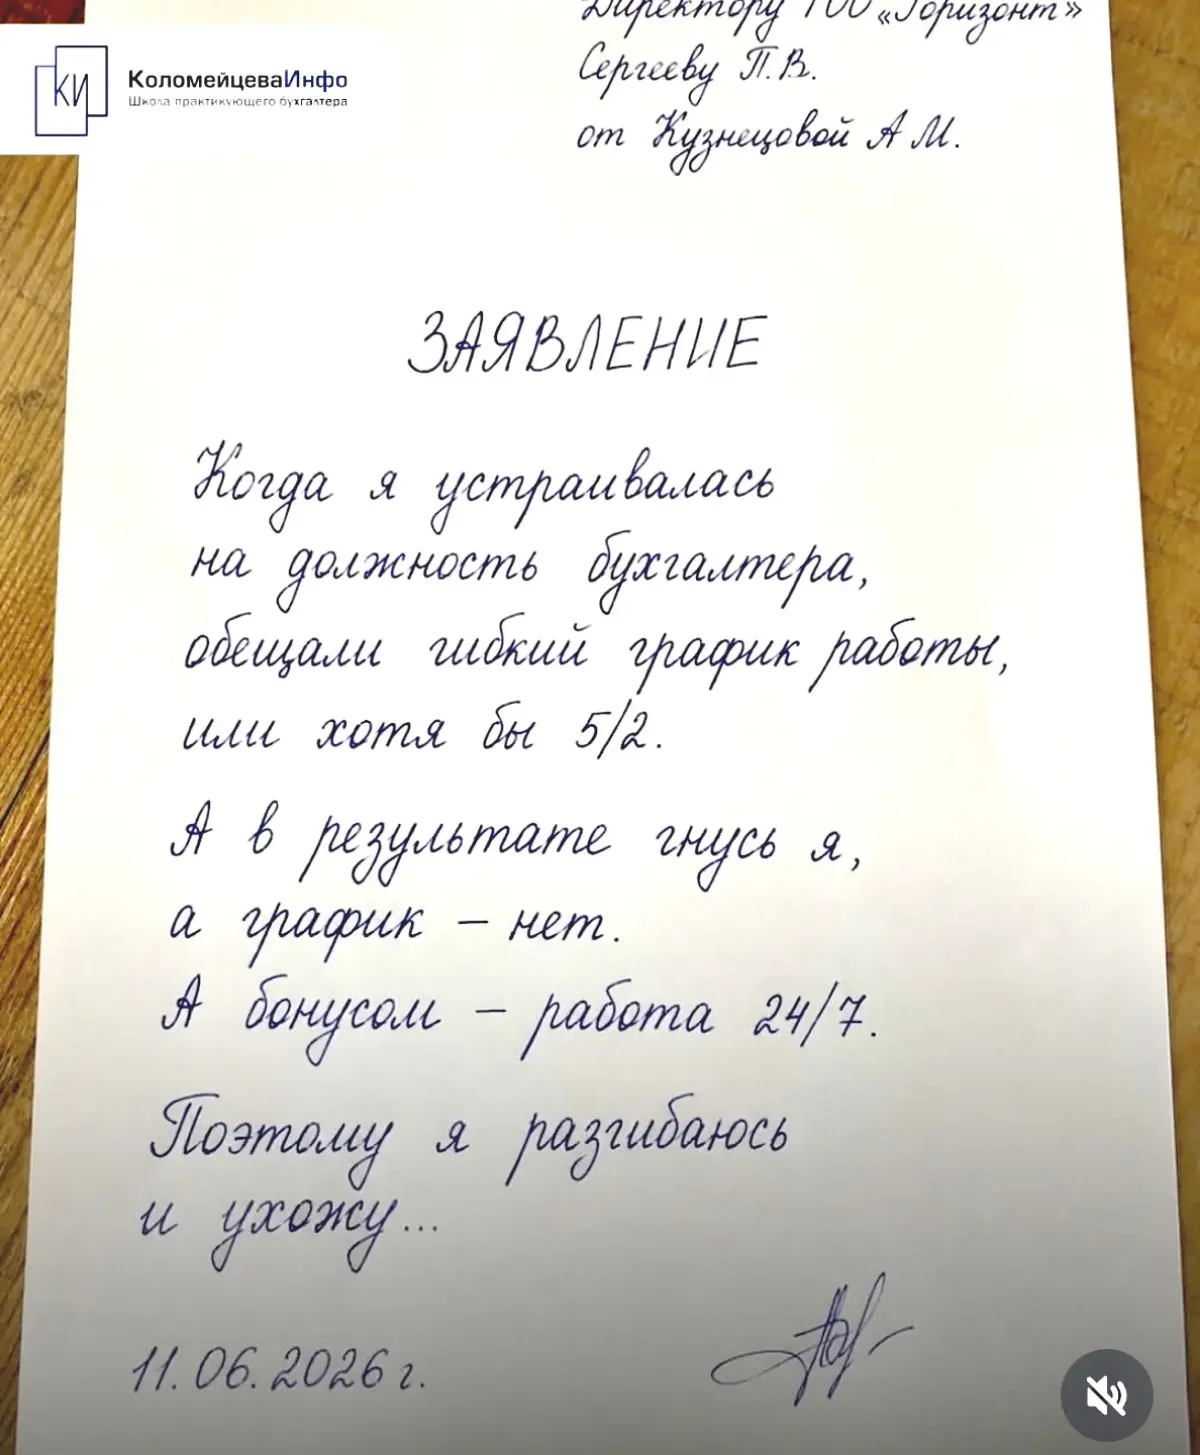 Директору ТОО «Горизонт»
Сергееву П.В.
от Кузнецовой А М.
КИ
КоломейцеваИнфо
Школа практикующего бухгалтера
ЗАЯВЛЕНИЕ
Когда я устраивалась
на должность бухгалтера,
обещали гибкий график работы,
или хотя бы 5/2.
А в результате гнусь я,
а график – нет.
А бонусом – работа 24/7.
Поэтому я разгибаюсь
и ухожу...
11.06.2026 г.